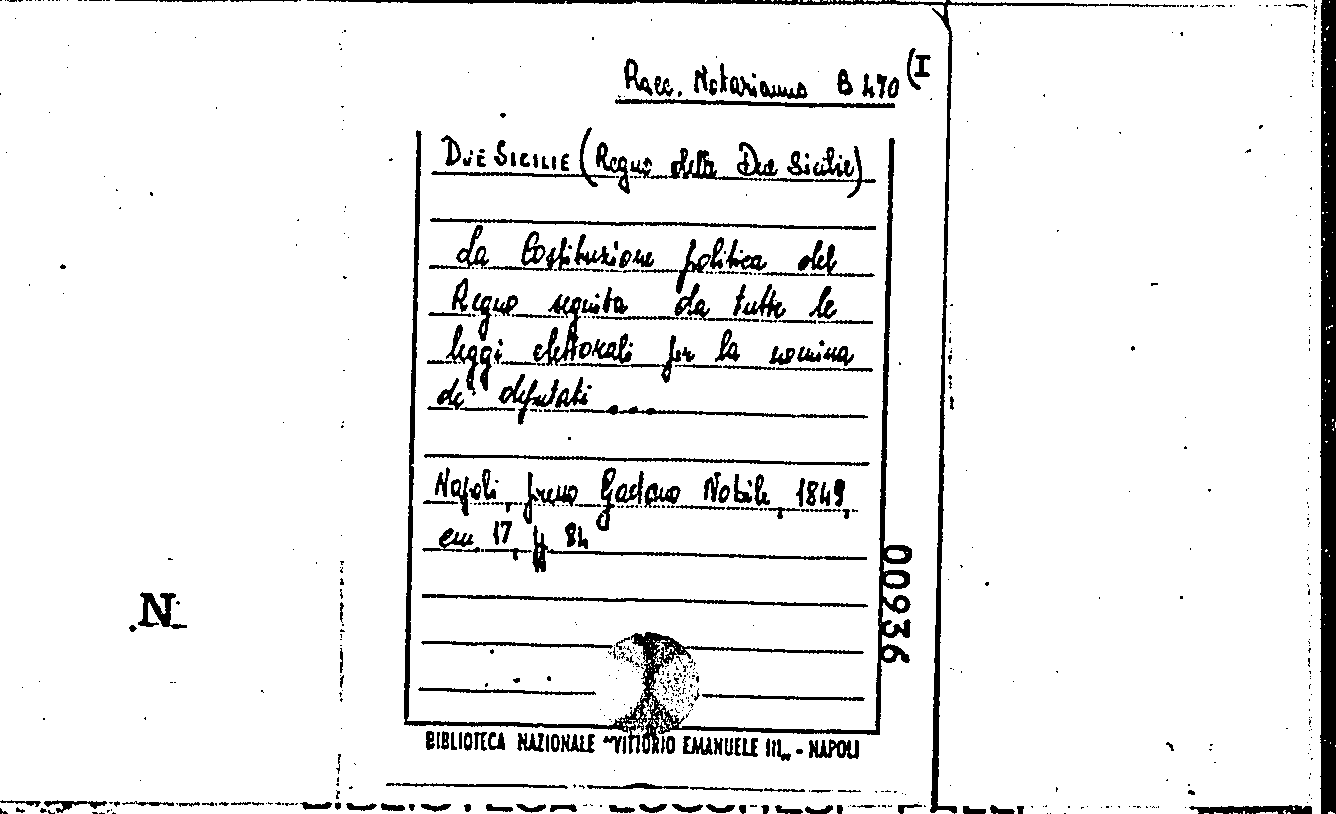 Racc. Notarianni B 470 (I
DUE SICILIE (Regno delle Due Sicilie)
La Costituzione politica del
Regno seguita da tutte le
leggi elettorali per la nomina
de' deputati ....
Napoli, presso Gaetano Nobile, 1849,
cm. 17, pp. 84
00936
N
BIBLIOTECA NAZIONALE "VITTORIO EMANUELE III„ - NAPOLI